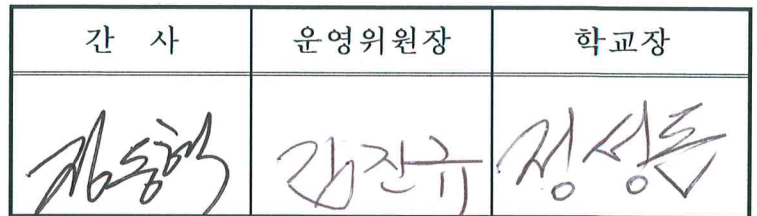 간 사 운영위원장 학교장
김진규 정성돔